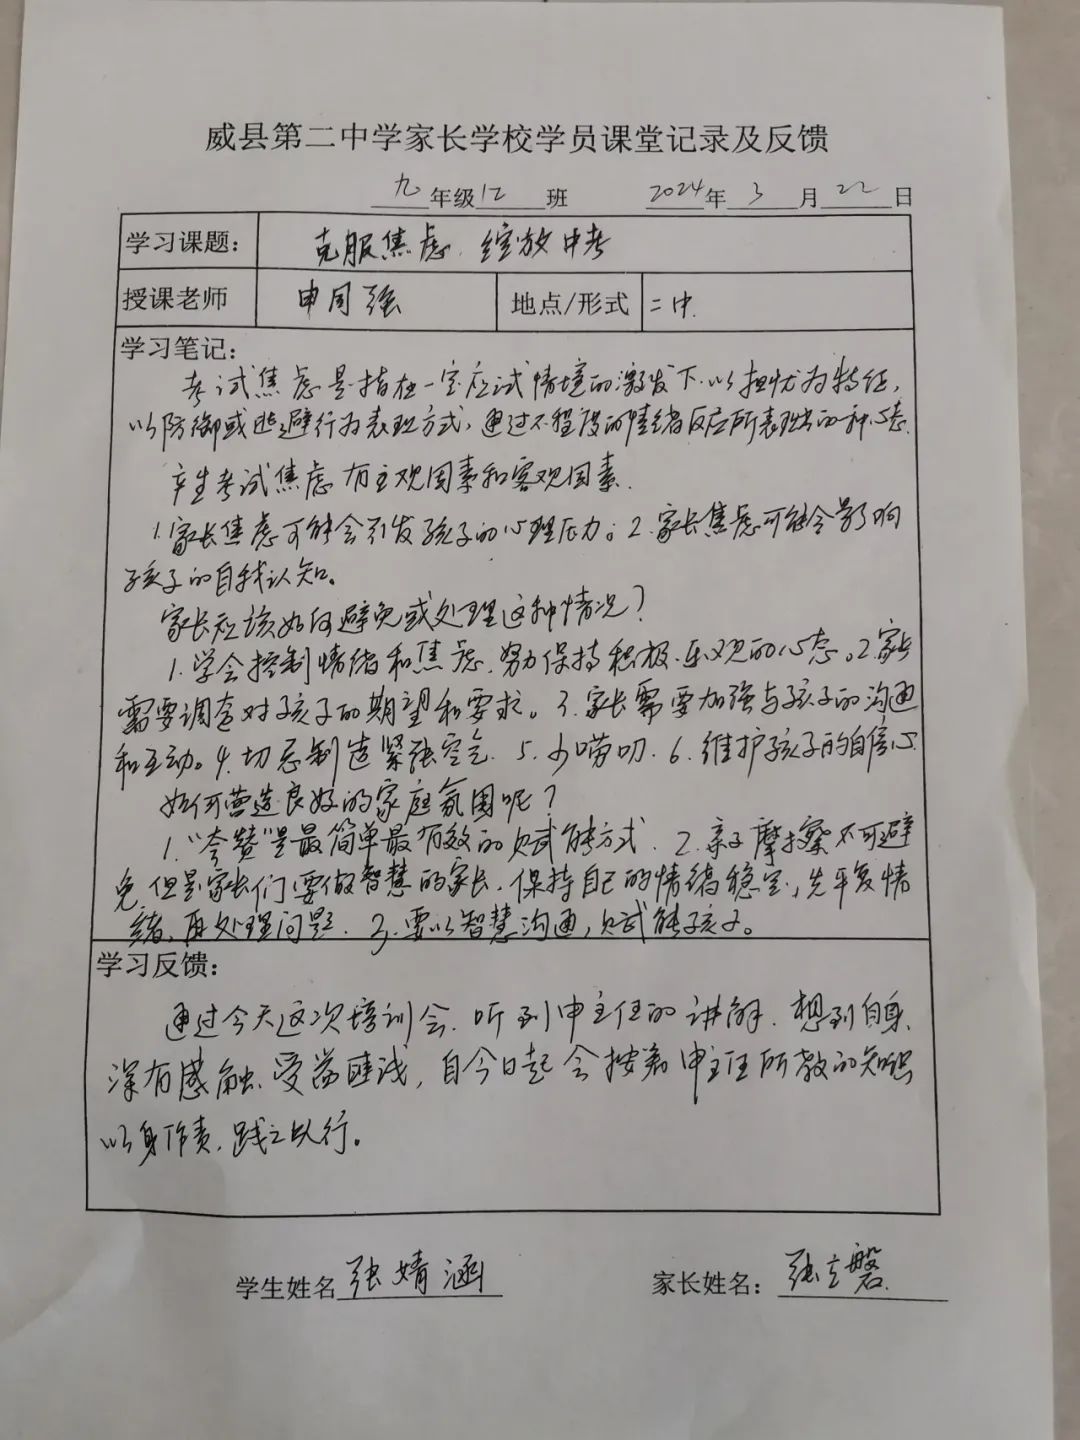 威县第二中学家长学校学员课堂记录及反馈
九年级12班 2024年3月22日
学习课题: 克服焦虑.绽放中考
授课老师 申同强 地点/形式 二中.
学习笔记:
考试焦虑是指在一定应试情境的激发下.以担忧为特征,
以防御或逃避行为表现方式,通过不程度的情绪反应所表现出的一种心态.
产生考试焦虑有主观因素和客观因素.
1.家长焦虑可能会引发孩子的心理压力。2.家长焦虑可能会影响
孩子的自我认知。
家长应该如何避免或处理这种情况?
1.学会控制情绪和焦虑.努力保持积极.乐观的心态。2家长
需要调查对孩子的期望和要求。3.家长需要加强与孩子的沟通
和互动。4.切忌制造紧张空气.5.少唠叨.6.维护孩子的自信心.
如何营造良好的家庭氛围呢?
1."夸赞"是最简单最有效的赋能方式.2.亲子摩擦不可避
免.但是家长们要做智慧的家长.保持自己的情绪稳定,先平复情
绪,再处理问题.3.要以智慧沟通,赋能孩子。
学习反馈:
通过今天这次培训会.听到申主任的讲解.想到自身.
深有感触.受益匪浅,自今日起会按着申主任所教的知识
以身作责.践之以行。
学生姓名 张婧涵 家长姓名: 张立磐